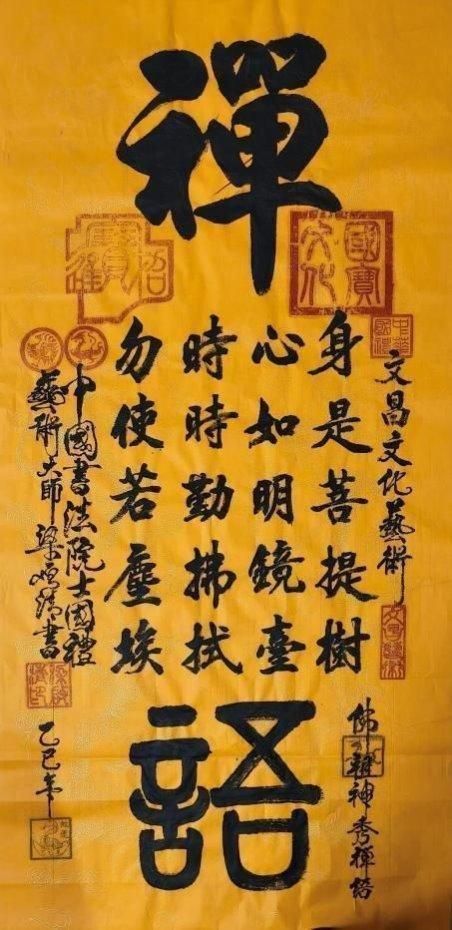 禪
文昌文化藝術
佛祖神秀禪語
身是菩提樹
心如明鏡臺
時時勤拂拭
勿使若塵埃
語
中國書法院士國禮
藝術大師梁
書
乙巳年
國寶文化
中華國禮